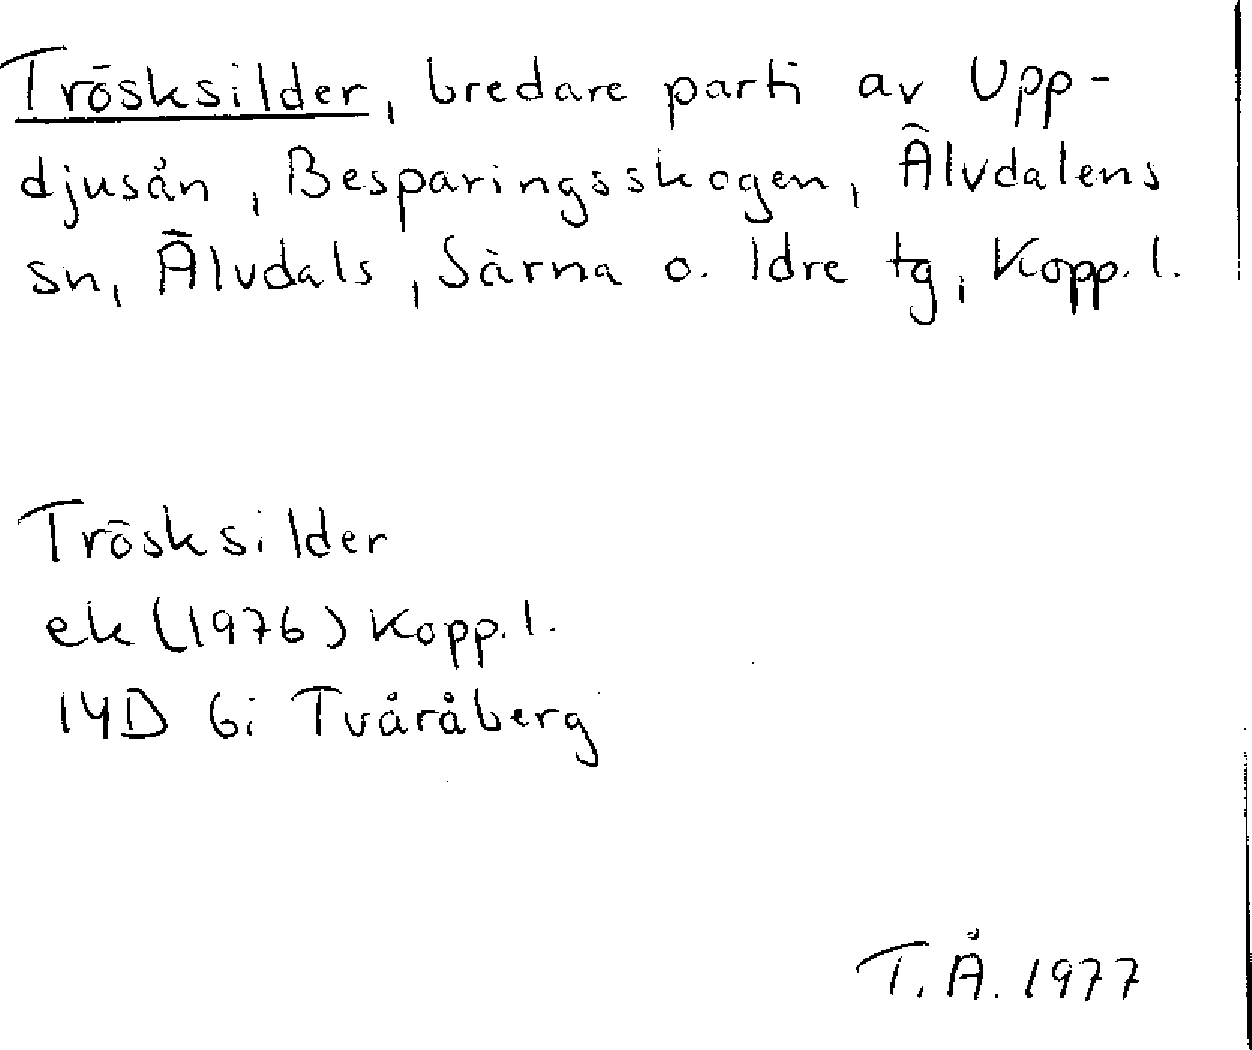 Trösksilder, bredare parti av Upp-
djusån, Besparingsskogen, Älvdalens
sn, Älvdals, Särna o. Idre tg, Kopp. l.
Trösksilder
ek (1976) Kopp. l.
14D 6i Tvåråberg
T. Å. 1977